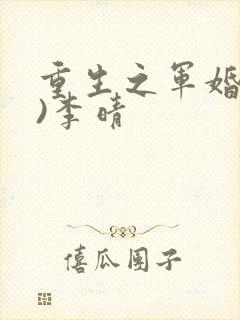 重生之军婚
)李晴
僖瓜团子